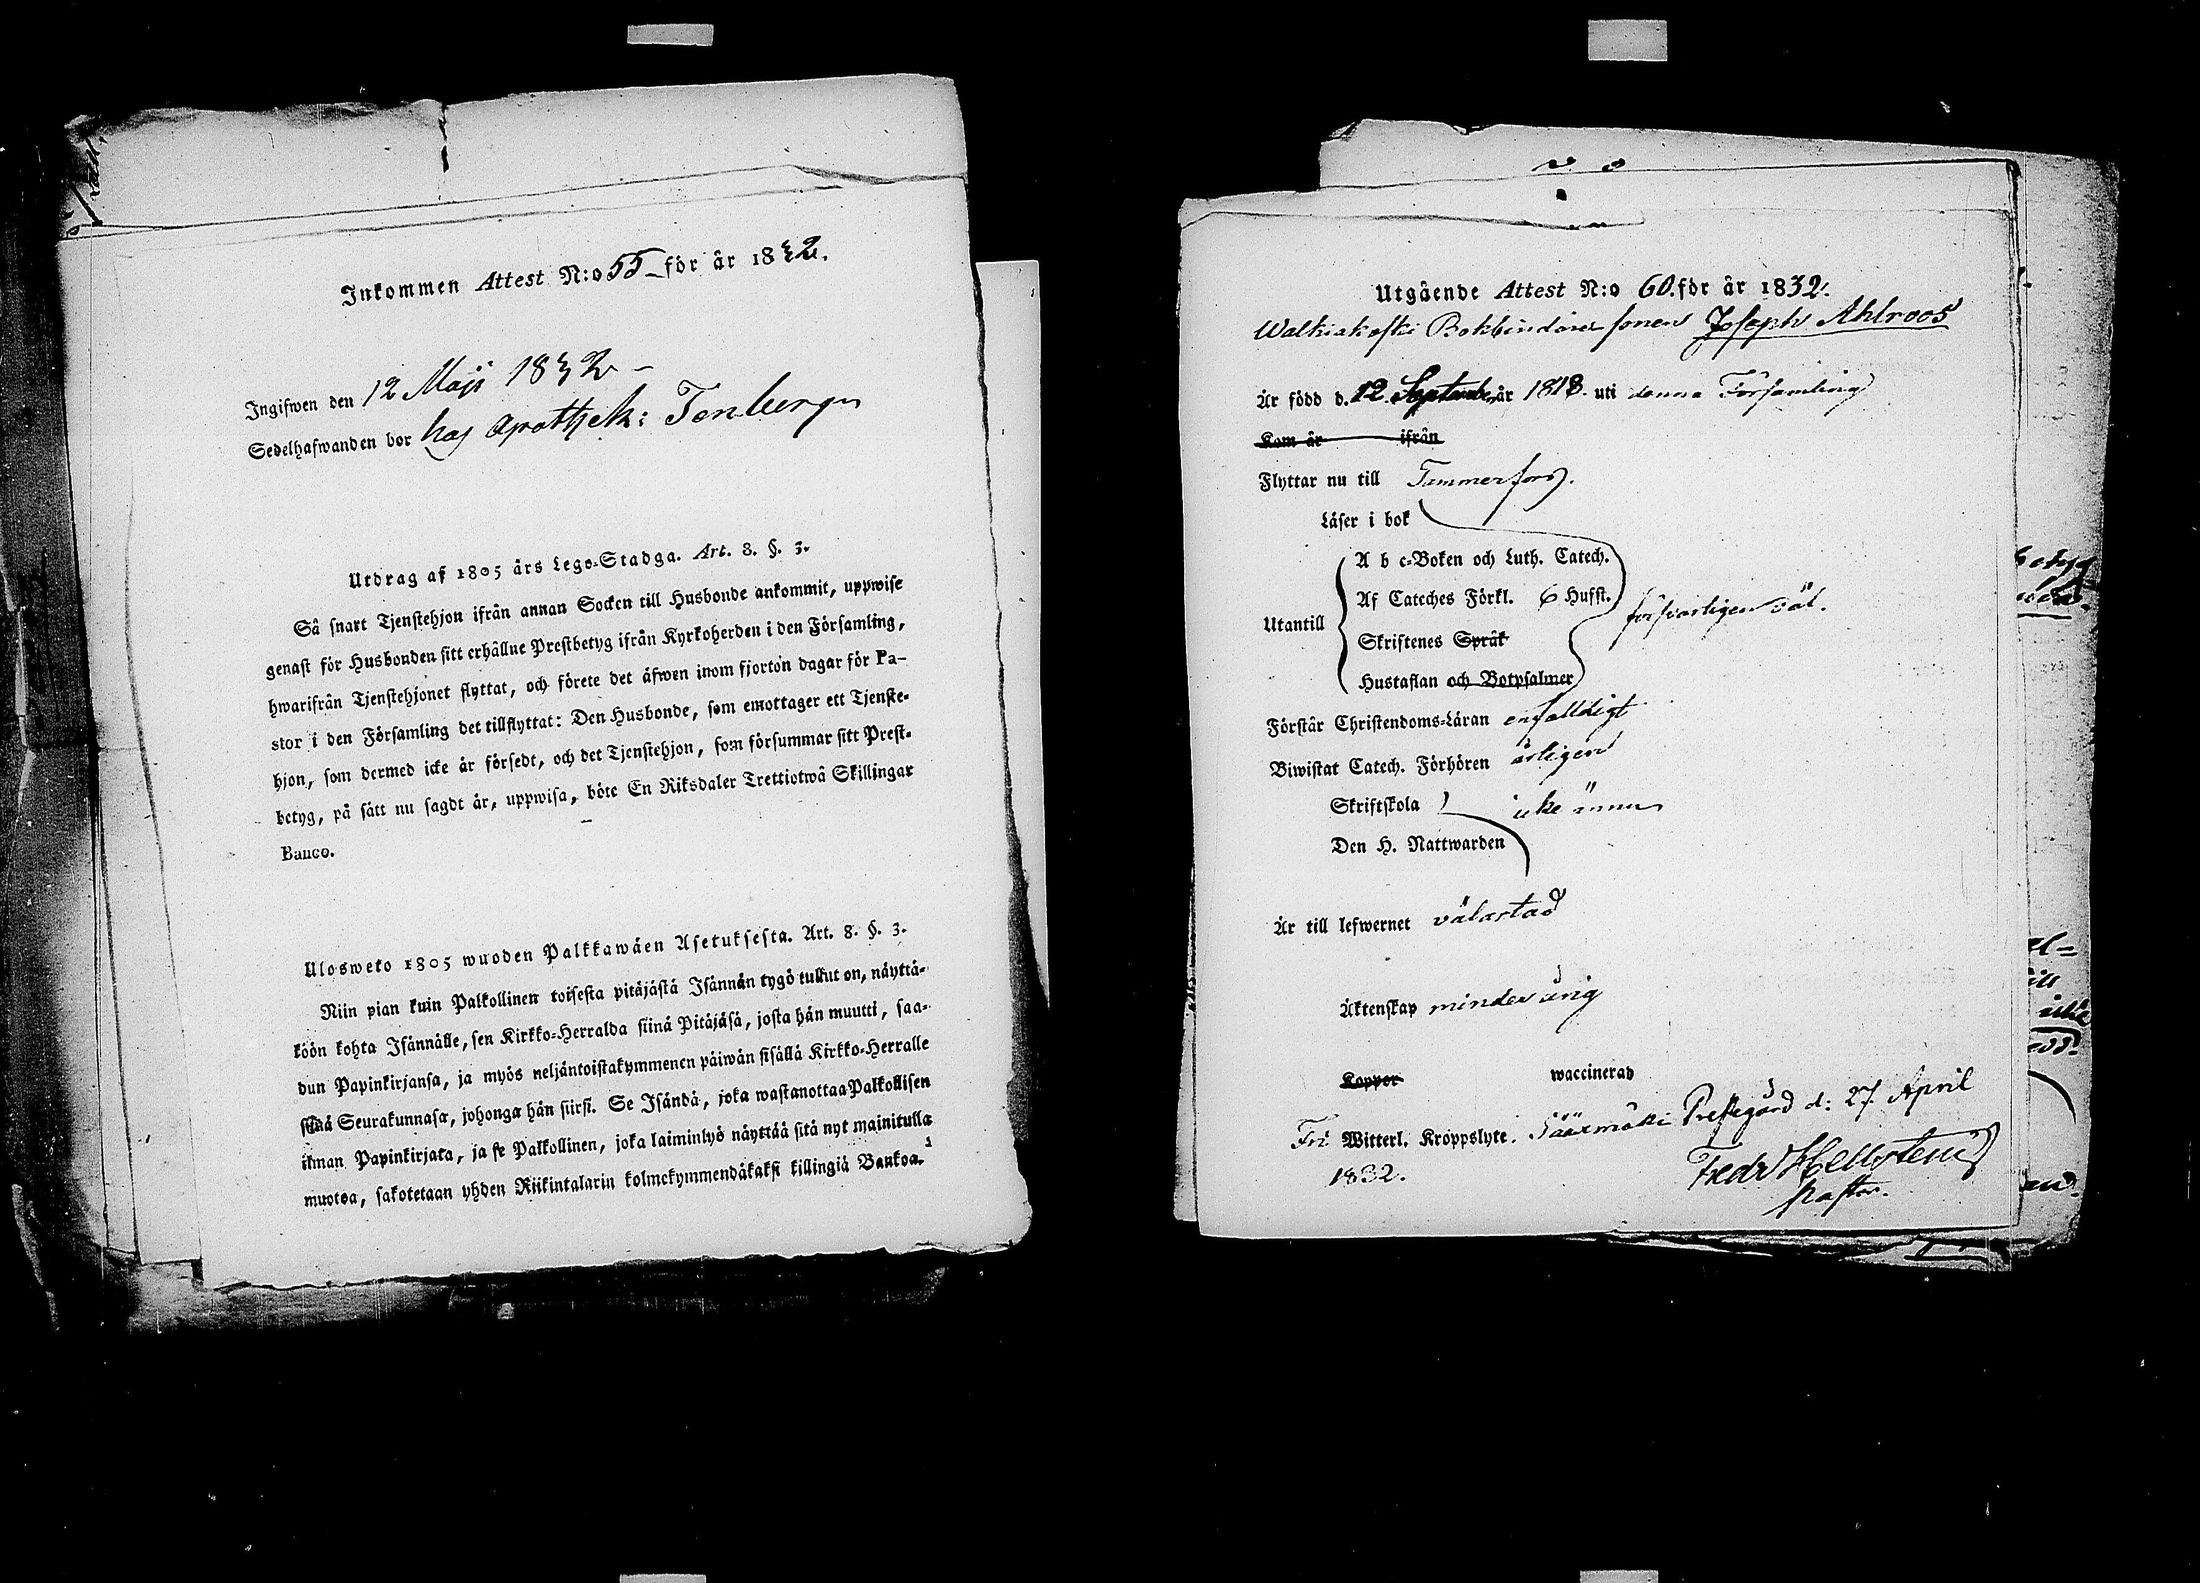 Inkommen Attest N:o 55 för år 1832.
Ingifwen den 12 Maji 1832
Sedelhafwanden bor hos Apothek: Tenberg
Utdrag af 1805 års Lego-Stadga. Art. 8. §. 3.
Så snart Tjenstehjon ifrån annan Socken till Husbonde ankommit, uppwise
genast för Husbonden sitt erhållne Prestbetyg ifrån Kyrkoherden i den Församling,
hwarifrån Tjenstehjonet flyttat, och förete det äfwen inom fjorton dagar för Pa-
stor i den Församling det tillflyttat: Den Husbonde, som emottager ett Tjenste-
hjon, som dermed icke är försedt, och det Tjenstehjon, som försummar sitt Prest-
betyg, på sätt nu sagdt är, uppwisa, böte En Riksdaler Trettiotwå Skillingar
Banco.
Ulosweto 1805 wuoden Palkkawäen Asetuksesta. Art. 8. §. 3.
Niin pian kuin Palkollinen toisesta pitäjästä Isännän tygö tullut on, näyttä-
köön kohta Isännälle, sen Kirkko-Herralda siinä Pitäjäsä, josta hän muutti, saa-
dun Papinkirjansa, ja myös neljäntoistakymmenen päiwän sisällä Kirkko-Herralle
siinä Seurakunnasa, johonga hän siirsi. Se Isändä, joka wastanottaa Palkollisen
ilman Papinkirjata, ja se Palkollinen, joka laiminlyö näyttää sitä nyt mainitulla
muotoa, sakotetaan yhden Riikintalarin kolmekymmendäkaksi killingiä Bankoa.
Utgående Attest N:o 60. för år 1832.
Walkiakoski Bokbindare sonen Joseph Ahlroos
Är född d. 12 September år 1818. uti denna Församling
Kom år ifrån
Flyttar nu till Tammerfors.
Läser i bok
A b c-Boken och Luth. Catech.
Af Cateches Förkl. 6 Hufst.
Utantill försvarligen väl.
Skriftenes Språk
Hustaflan och Botpsalmer
Förstår Christendoms-Läran enfalldigt
Biwistat Catech. Förhören årligen
Skriftskola icke ännu
Den H. Nattwarden
Är till lefwernet välartad
Äktenskap minderårig
Koppor waccinerad
Fri Witterl. Kroppslyte. Säärmäki Prestegård d: 27 April
1832. Fredr Hellsténius
Pastor.